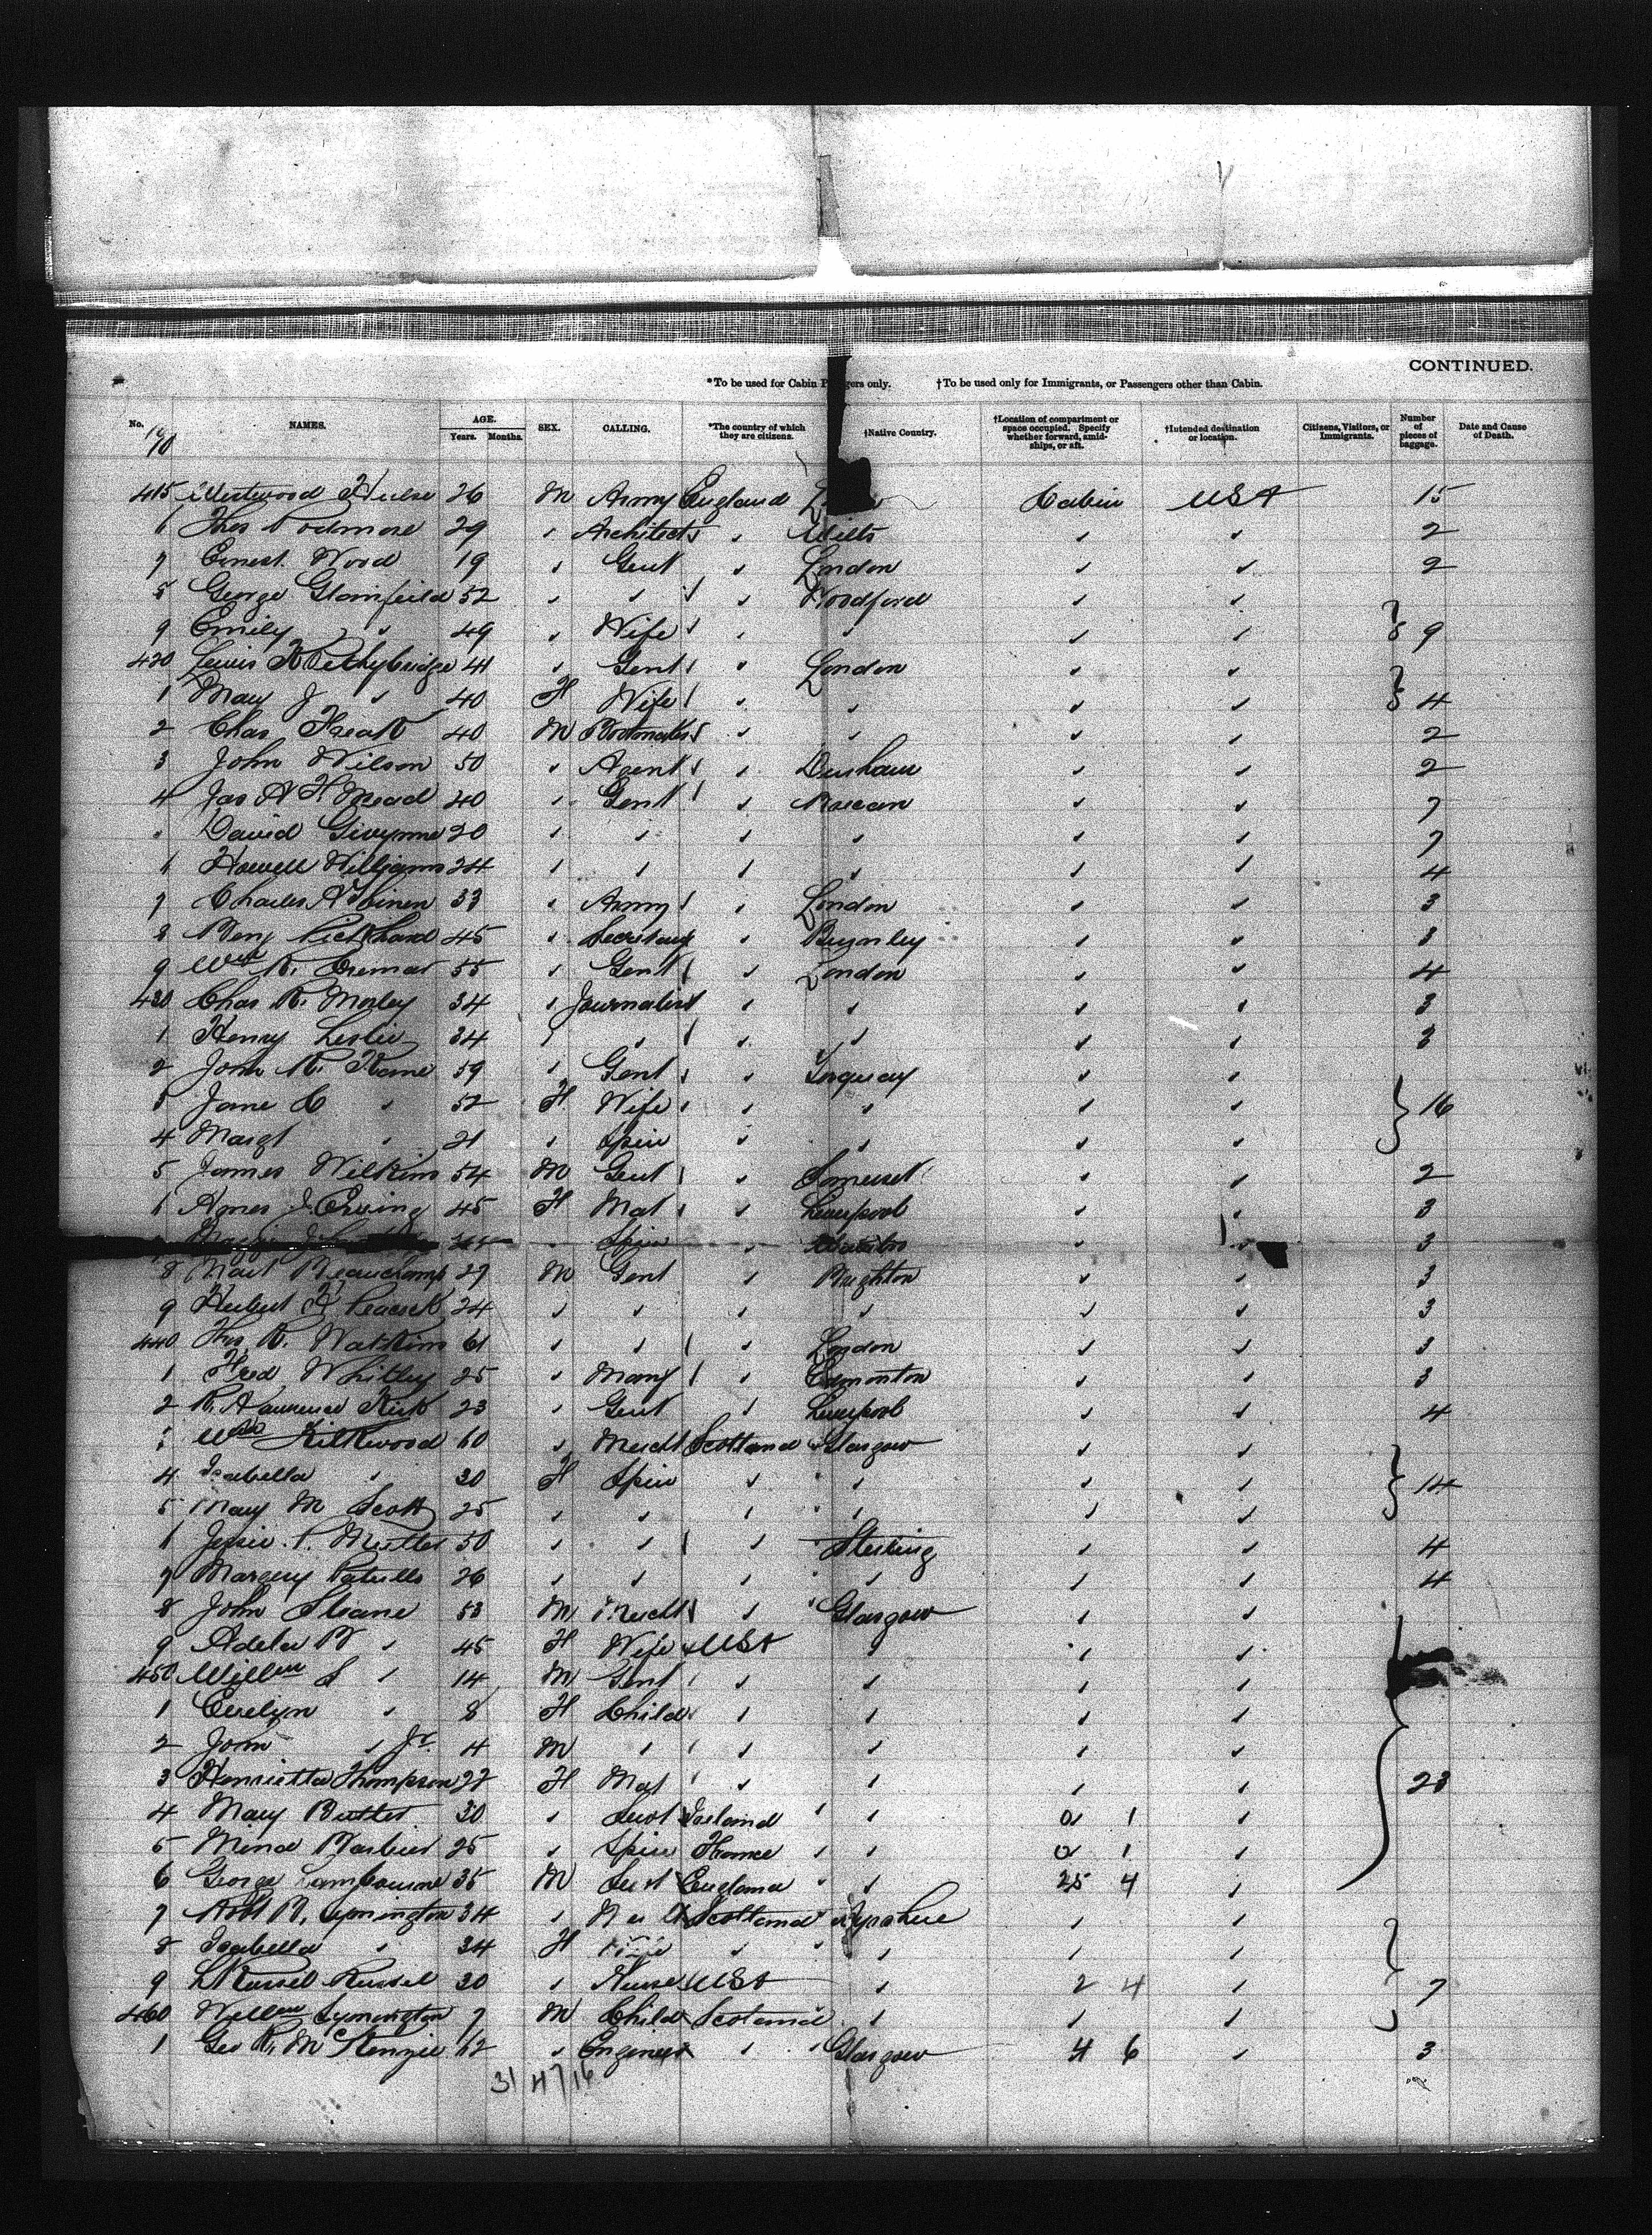 CONTINUED.
*To be used for Cabin P gers only. †To be used only for Immigrants, or Passengers other than Cabin.
No. NAMES. AGE. Years. Months. SEX. CALLING. *The country of which they are citizens. †Native Country. †Location of compartment or space occupied. Specify whether forward, amidships, or aft. †Intended destination or location. Citizens, Visitors, or Immigrants. Number of pieces of baggage. Date and Cause of Death.
415 Westwood Hulse 26 M Army England Cabin USA 15
6 Thos Podmore 29 " Architect " " Wilts " " 2
7 Ernest Wood 19 " Gent " London " " 2
George Glamfeild 52 " " " Woodford " "
9 Emily " 49 " Wife " " " " 9
420 Lewis 41 " Gent " London " "
1 Mary J " 40 F Wife " " " " 4
2 Chas 40 M " " " " 2
3 John Wilson 50 " Agent " Durham " " 2
4 Jas A H Mead 40 " Gent " " " 7
" David Gwynne 20 " " " " " " 7
6 Howell Williams 24 " " " " " " 4
7 Charles 33 " Army " London " " 3
8 Benj Pickhard 45 " Secretary " Burnley " " 3
9 Wm R. Cremer 55 " Gent " London " " 4
430 Chas R. Morley 34 " Journalist " " " " 3
1 Henry Leslie 34 " " " " " " 3
2 John R. Kane 59 " Gent " Torquay " "
3 Jane C " 52 F Wife " " " " 16
4 Margt " 21 " Spin " " " "
5 James Wilkins 54 M Gent " Somerset " " 2
6 Agnes J. Erving 45 F Mat " Liverpool " " 3
Spin " " " 3
8 Beauchamp 27 M Gent " Brighton " " 3
9 Herbert Peacock 24 " " " " " " 3
440 Thos R. Watkins 61 " " " London " " 3
1 Fred Whitley 25 " Manf " Edmonton " " 3
2 R. Lawrence 23 " Gent " Liverpool " " 4
3 Wm 60 " Mercht Scotland Glasgow " "
4 Isabella " 30 F Spin " " " " 14
5 Mary M Scott 25 " " " " " "
6 Jessie P. 50 " " " Sterling " " 4
7 Margery Patullo 26 " " " " " " 4
8 John Sloane 53 M Mercht " Glasgow " "
9 Adela " 45 F Wife USA " " "
450 Willm S " 14 M Gent " " " "
1 Evelyn " 8 F Child " " " "
2 John " Jr. 4 M " " " " "
3 Henrietta Thompson 27 F Mat " " " " 23
4 Mary Butler 30 " Servt Ireland " 1 "
5 Mina 25 " Spin France " 1 "
6 George Lambourne 35 M Servt England " 25 4 "
7 Robt R. Symington 34 " Scotland Ayrshire " "
8 Isabella " 34 F " " " "
9 Russel 30 " Nurse USA " 2 4 " 7
460 Willm Symington 7 M Child Scotland " " "
1 Geo R. McKenzie 62 " Engineer " Glasgow 4 6 " 3